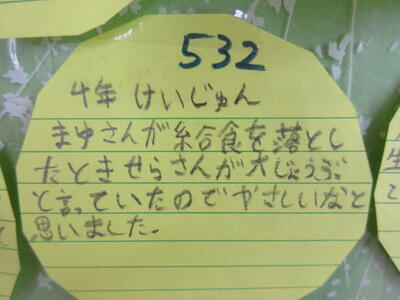 532
4年 けいじゅん
まゆさんが給食を落とし
たときせらさんが大じょうぶ
と言っていたのでやさしいなと
思いました。